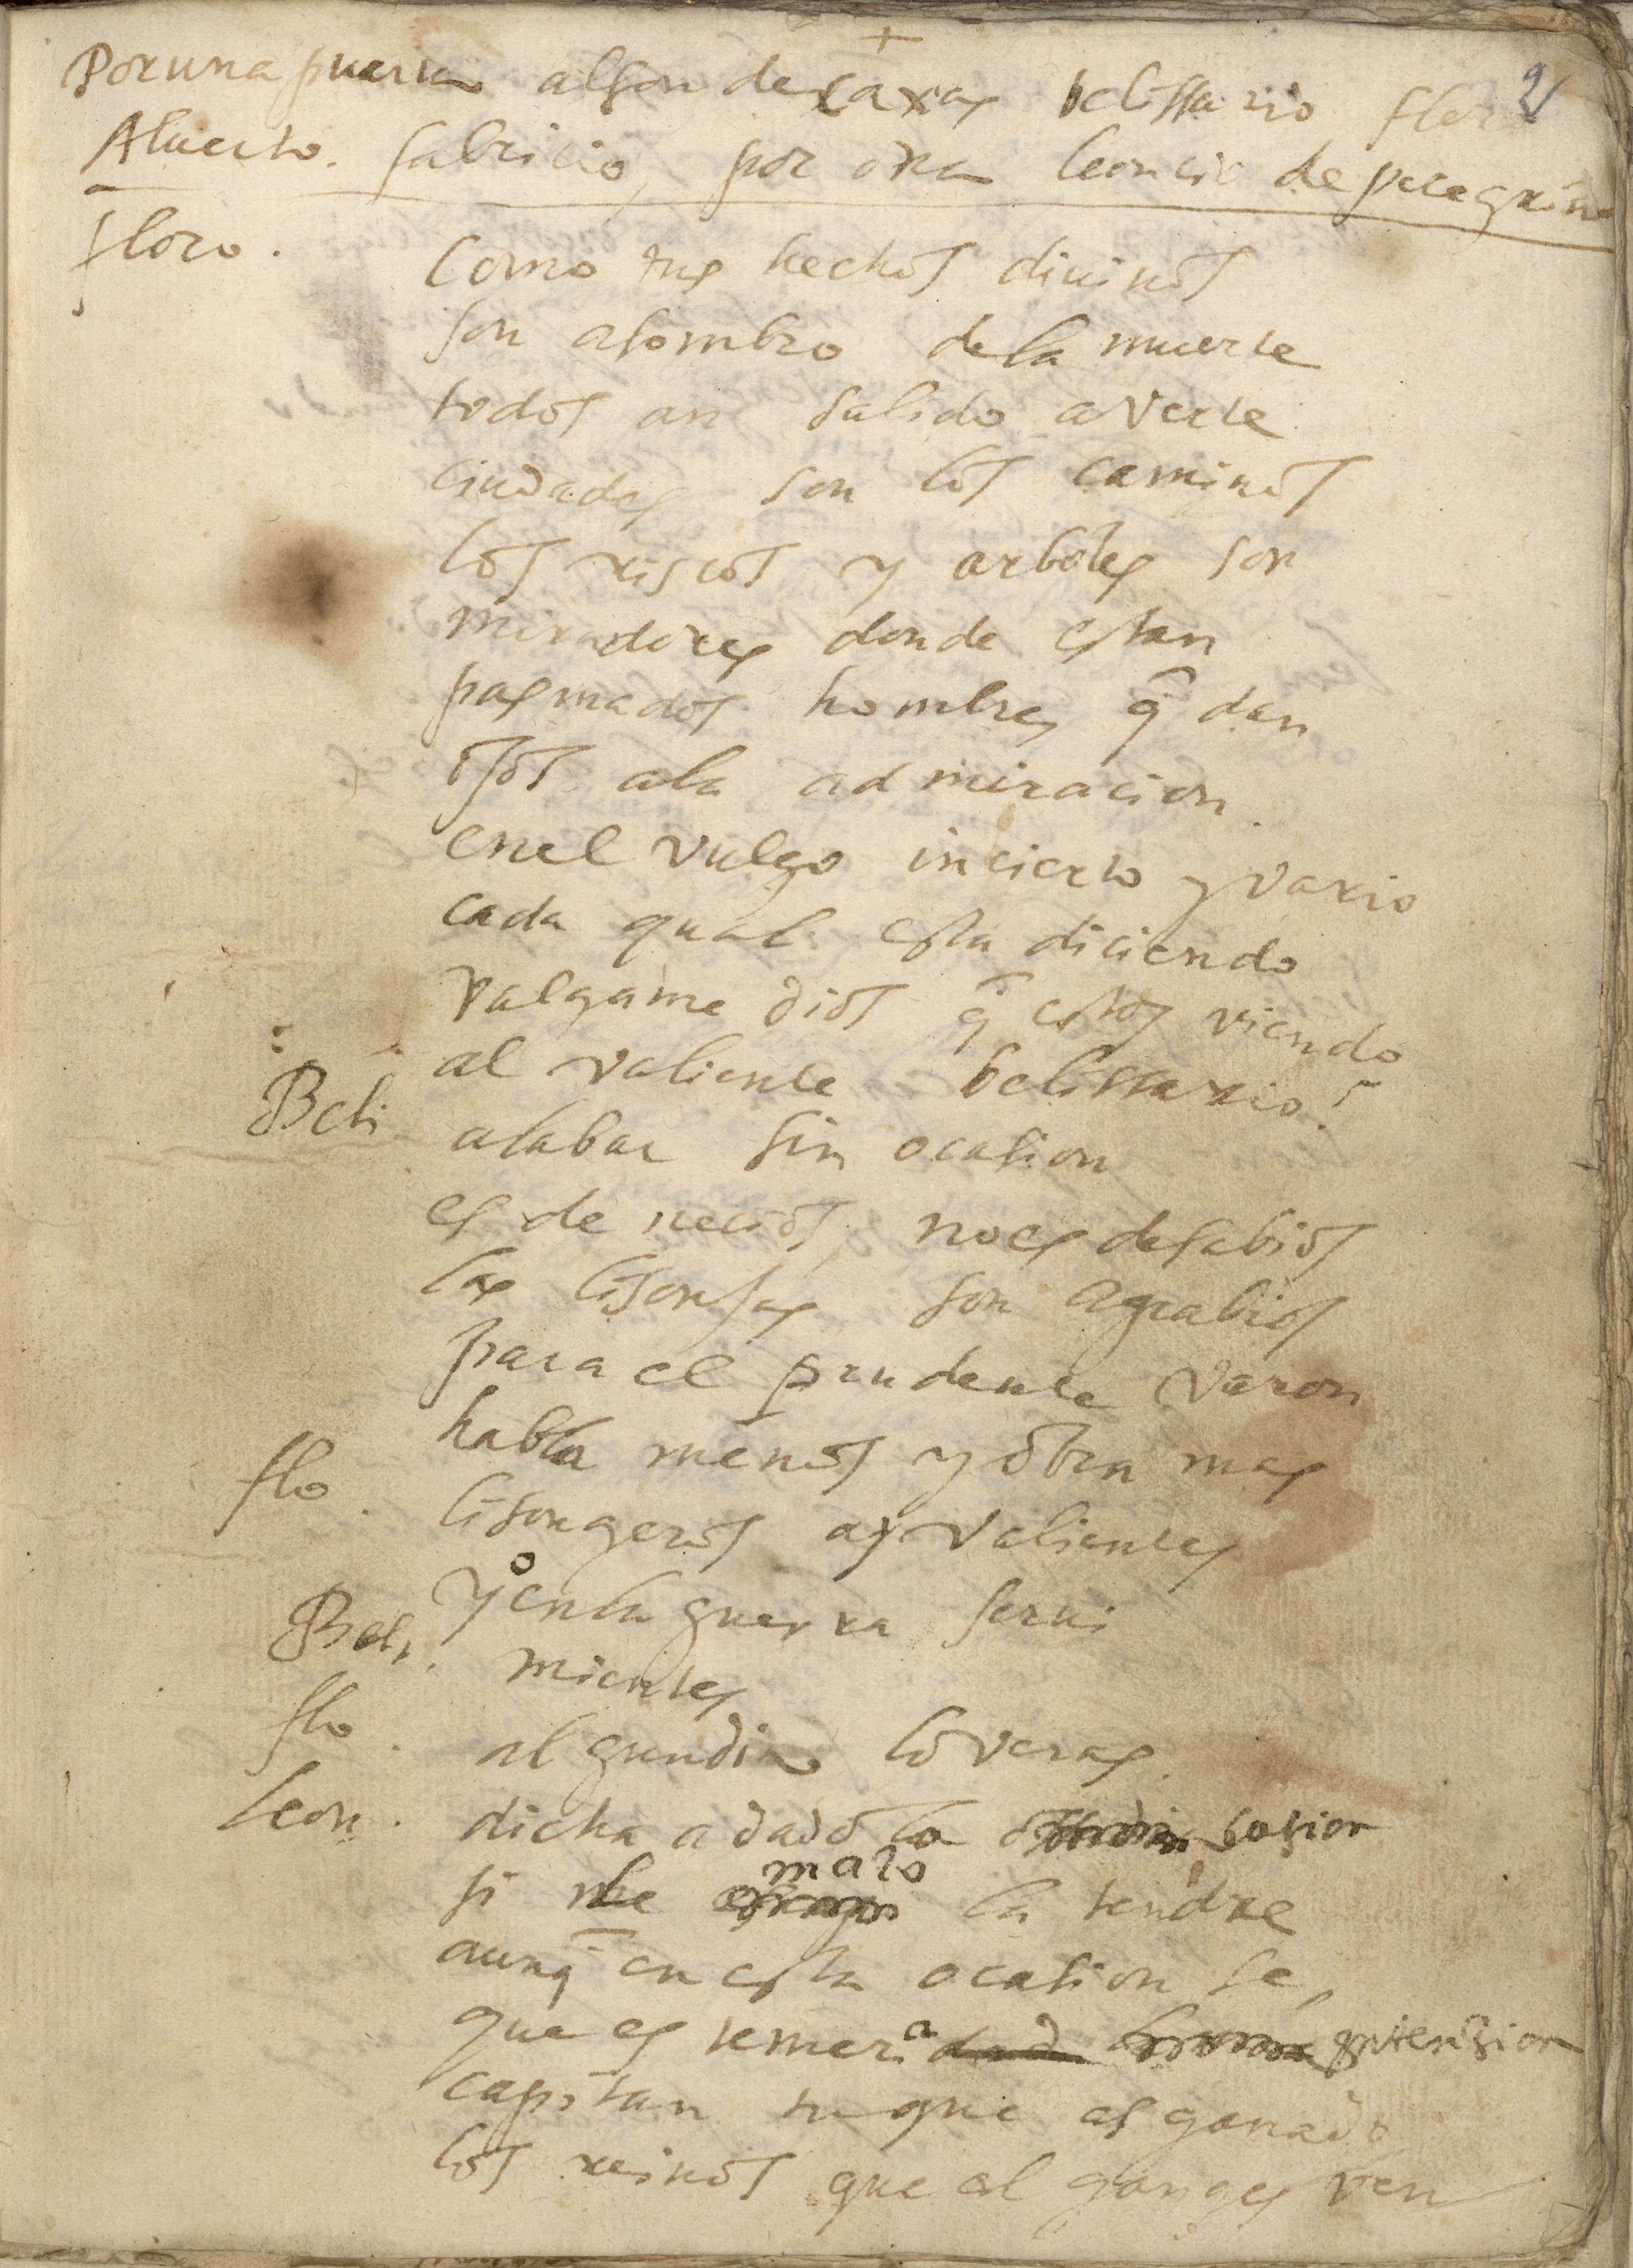 +
2
Por una puerta al son de caxas belissario floro
Alberto. fabricio, por otra leoncio de peregrino
floro. Como tus hechos diuinos
son asombro de la muerte
todos an salido a verte
ciudades son los caminos
los riscos y arboles son
miradores donde estan
pasmados hombres q̃ dan
ojos a la admiracion
en el vulgo incierto y vario
cada qual esta diciendo
valgame dios q̃ estoy viendo
al valiente belissario?
Beli alabar sin ocasion
es de necios, no es de sabios
las lisonjas son agrabios
para el prudente varon
habla menos y obra mas
flo. lisongeros ay valientes
yo en la guerra serui
Beli. mientes
flo. algun dia lo veras
leon. dicha a dado la ocasion
si le mato la tendre
aunq̃ en esta ocasion se
que es temeraria yntenzion
capitan tu que as ganado
los reinos que al ganges ven